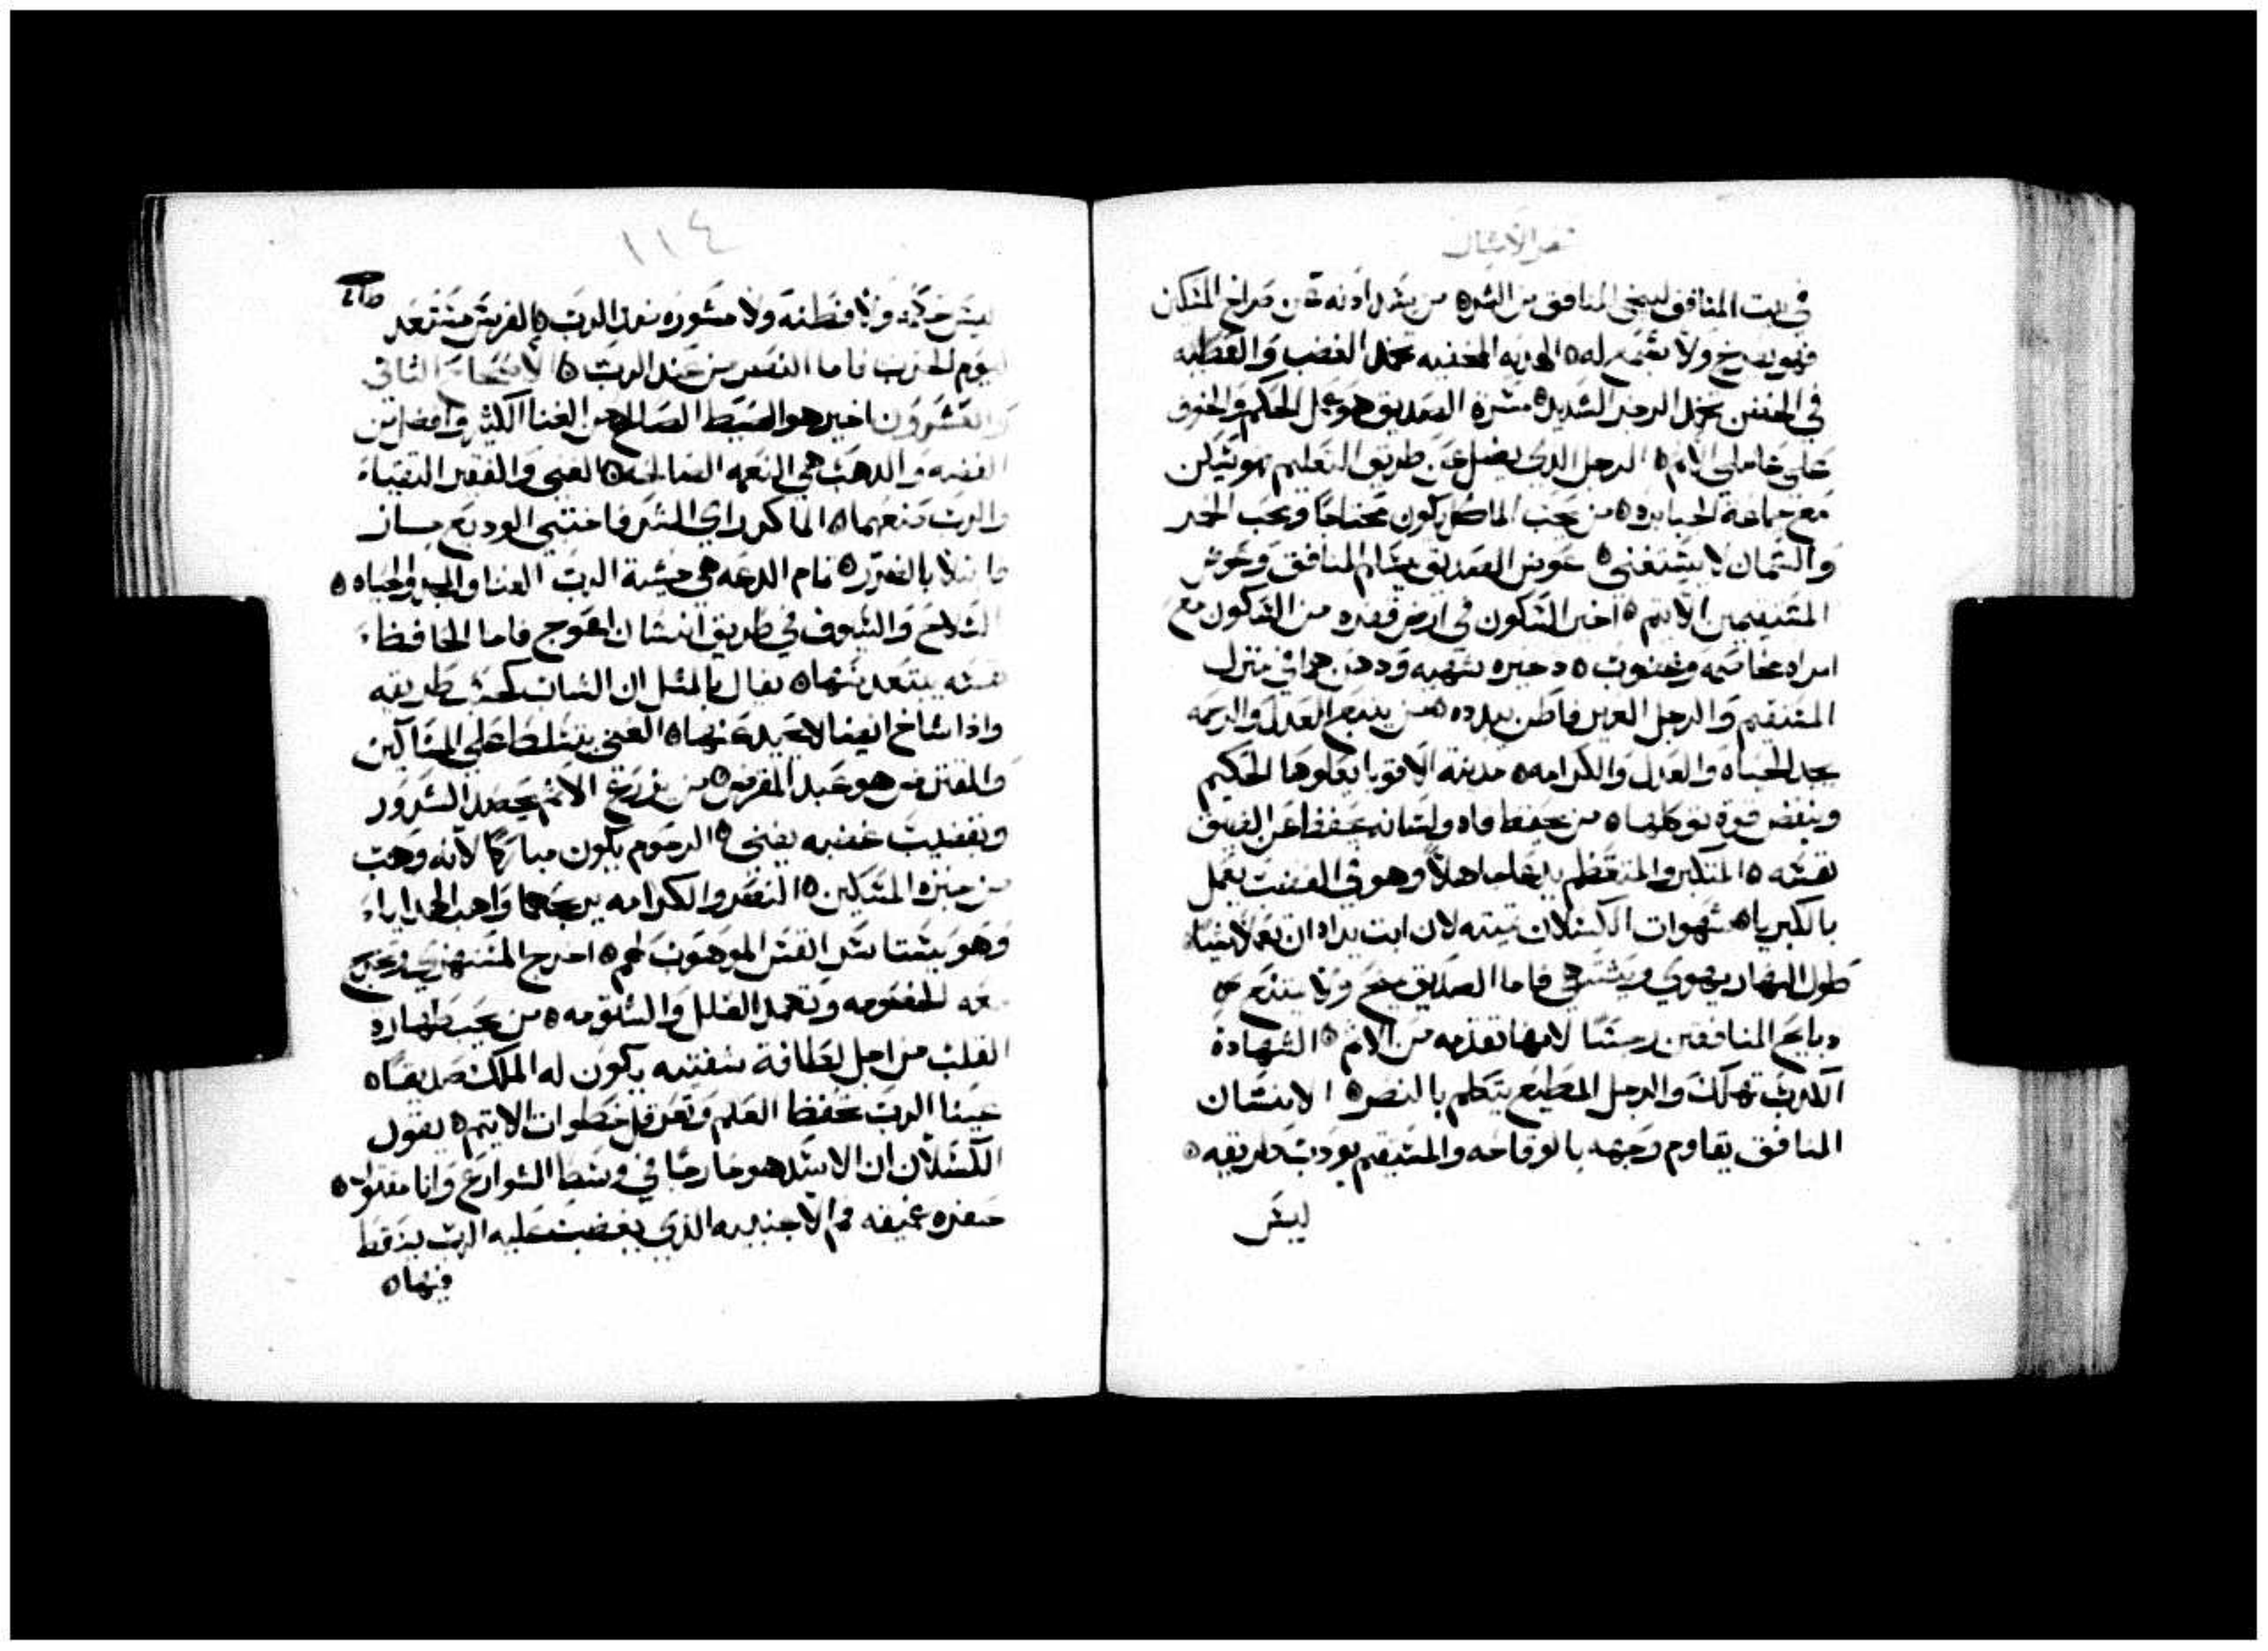 سفر الامثال
في بيت المنافق ليمحي المنافق من الشر ه من يشد ادنه عن صراخ المسكين
فهو يصرخ ولا يسمع له ه الهديه المخفيه تخمد الغضب والعطيه
في الحضن تخمد الرجز الشديد ه مسرة الصديق هو عمل الحكم والخوف
على عاملي الاثم ه الرجل الدي يضل عن طريق التعليم هو يسكن
مع جماعة الجبابره ه من يحب الماكل يكون محتاجا ويحب الخمر
والسمان لا يستغني ه عوض الصديق يسلم المنافق وعوض
المستقيمين الاثيم ه اخير السكون في ارض قفره من السكون مع
امراه مخاصمه وغضوب ه دخيره شهيه ودهن هما في منزل
المستقيم والرجل الغير فاطن يبدده ه من يتبع العدل والرحمه
يجد الحياه والعدل والكرامه ه مدينة الاقويا يعلوها الحكيم
وينقض قوة توكلها ه من يحفظ فاه ولسانه يحفظ من الضيق
نفسه ه المتكبر والمتعظم يدعا جاهلا وهو في الغضب يعمل
بالكبريا ه شهوات الكسلان تميته لان ابت يداه ان تعملا شيا
طول النهار يهوي ويشتهي فاما الصديق يمنح ولا يمتنع ه
دبايح المنافقين رجسا لانها تقدمه من الاثم ه الشهادة
الكدب تهلك والرجل المطيع يتكلم بالنصر ه الانسان
المنافق يقاوم وجهه بالوقاحه والمستقيم يودب طريقه ه
ليس
١١٤
ليس حكمه ولا فطنه ولا مشوره ضد الرب ه الفرس مستعد
ليوم الحرب فاما النصر من عند الرب ه الاصحاح الثاني
والعشرون اخير هو الصيط الصالح من الغنا الكثير وافضل من
الفضه والدهب هي النعمه الصالحه ه الغني والفقير التقياء
والرب صنعهما ه الماكر راي الشر فاختبى الوديع جاز
فابتلا بالضرر ه تمام الدعه هي خشية الرب الغنا والمجد والحياه ه
السلاح والسيوف في طريق انسان اعوج فاما الحافظ
نفسه يبتعد منها ه يقال بالمثل ان الشاب كحسب طريقه
وادا شاخ ايضا لا يحيد عنها ه الغني يتسلط على المساكين
والمقترض هو عبد المقرض ه من يزرع الاثم يحصد الشرور
وبقضيب غضبه يفنى ه الرحوم يكون مباركا لانه وهب
من خبزه المسكين ه النصر والكرامه يربحهما واهب الهدايا
وهو يشتا سل انفس الموهوب لهم ه اخرج المستهزي ويخرج
معه الخصومه وتخمد العلل والشلومه ه من يحب طهارة
القلب من اجل لطافة شفتيه يكون له الملك صديقا ه
عينا الرب تحفظ العلم وتعرقل خطوات الاثيم ه يقول
الكسلان ان الاسد هو خارجا في وسط الشوارع وانا مقتول ه
حفره عميقه فم الاجنبيه الدي يغضب عليه الرب يسقط
فيها ه